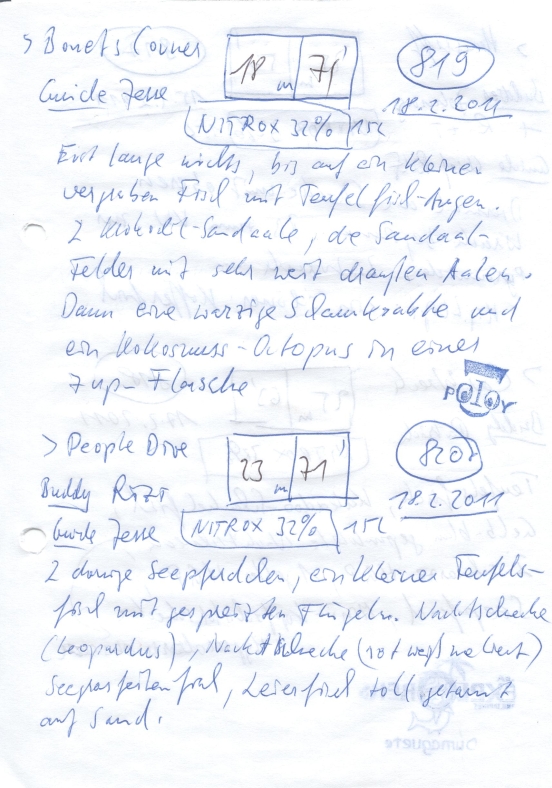 > Bonets Corner
18 m 71'
819
Guide Jesse
18.2.2011
NITROX 32% 15L
Erst lange nichts, bis auf ein kleiner
vergraben Fisch mit Teufelfisch-Augen.
2 Krokodil-Sandaale, die Sandaal-
Felder mit sehr weit draußen Aalen.
Dann eine warzige Schamkrabbe und
ein Kokosnuss-Octopus in einer
7up-Flasche
POLOY
> People Dive
23 m 71'
820
Buddy
18.2.2011
Guide Jesse
NITROX 32% 15L
2 dornige Seepferdchen, ein kleiner Teufels-
fisch mit gespreizten Flügeln. Nacktschnecke
(Leopardus), Nacktschnecke (rot weiß)
Seegrasfeilenfisch, Leierfisch toll getarnt
auf Sand.
Dumaguete